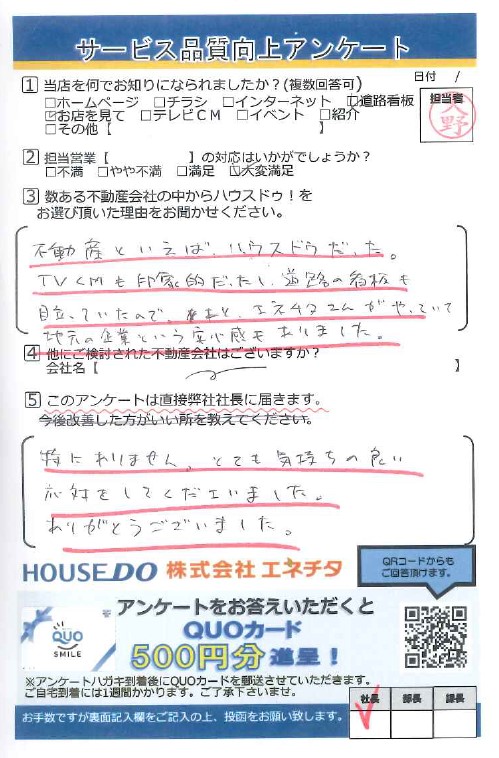 サービス品質向上アンケート
1 当店を何でお知りになられましたか?(複数回答可)
日付 /
□ホームページ □チラシ □インターネット ☑道路看板
☑お店を見て □テレビCM □イベント □紹介
□その他【 】
担当者
天野
2 担当営業【 】の対応はいかがでしょうか?
□不満 □やや不満 □満足 ☑大変満足
3 数ある不動産会社の中からハウスドゥ!を
お選び頂いた理由をお聞かせください。
不動産といえば、ハウスドゥだった。
TVCMも印象的だったし、道路の看板も
目立っていたので。あと、エネチタさんがやっていて
地元の企業という安心感もありました。
4 他にご検討された不動産会社はございますか?
会社名【 】
5 このアンケートは直接弊社社長に届きます。
今後改善した方がいい所を教えてください。
特にありません。とても気持ちの良い
応対をしてくださいました。
ありがとうございました。
HOUSEDO 株式会社 エネチタ
QRコードからも
ご回答頂けます。
アンケートをお答えいただくと
QUOカード
500円分 進呈!
QUO
SMILE
※アンケートハガキ到着後にQUOカードを郵送させていただきます。
ご自宅到着には1週間かかります。ご了承下さいませ。
お手数ですが裏面記入欄をご記入の上、投函をお願い致します。
社長 部長 課長